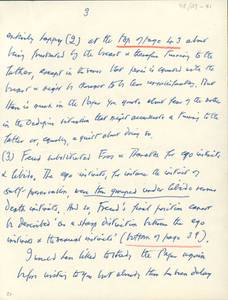 3
entirely happy (2) at the top of page 43 about
being frustrated by the breast & therefore turning to the
father, except in the sense that penis is equated with the
breast & might be thought to be less unsatisfactory. But
there is much in the Paper you quote about fear of the mother
in the Oedipus situation that might accentuate a turning to the
father or, equally, a quiet about doing so.
(3) Freud substituted Eros & Thanatos for ego instincts
& libido. The ego instincts, for instance the instinct of
self-preservation, were then grouped under libido versus
death instincts. And so, Freud's first position cannot
be described "as a strong distinction between the ego
instincts & the sexual instincts" (bottom of page 39).
I would have liked to study the Paper again
before writing to you but already there has been delay